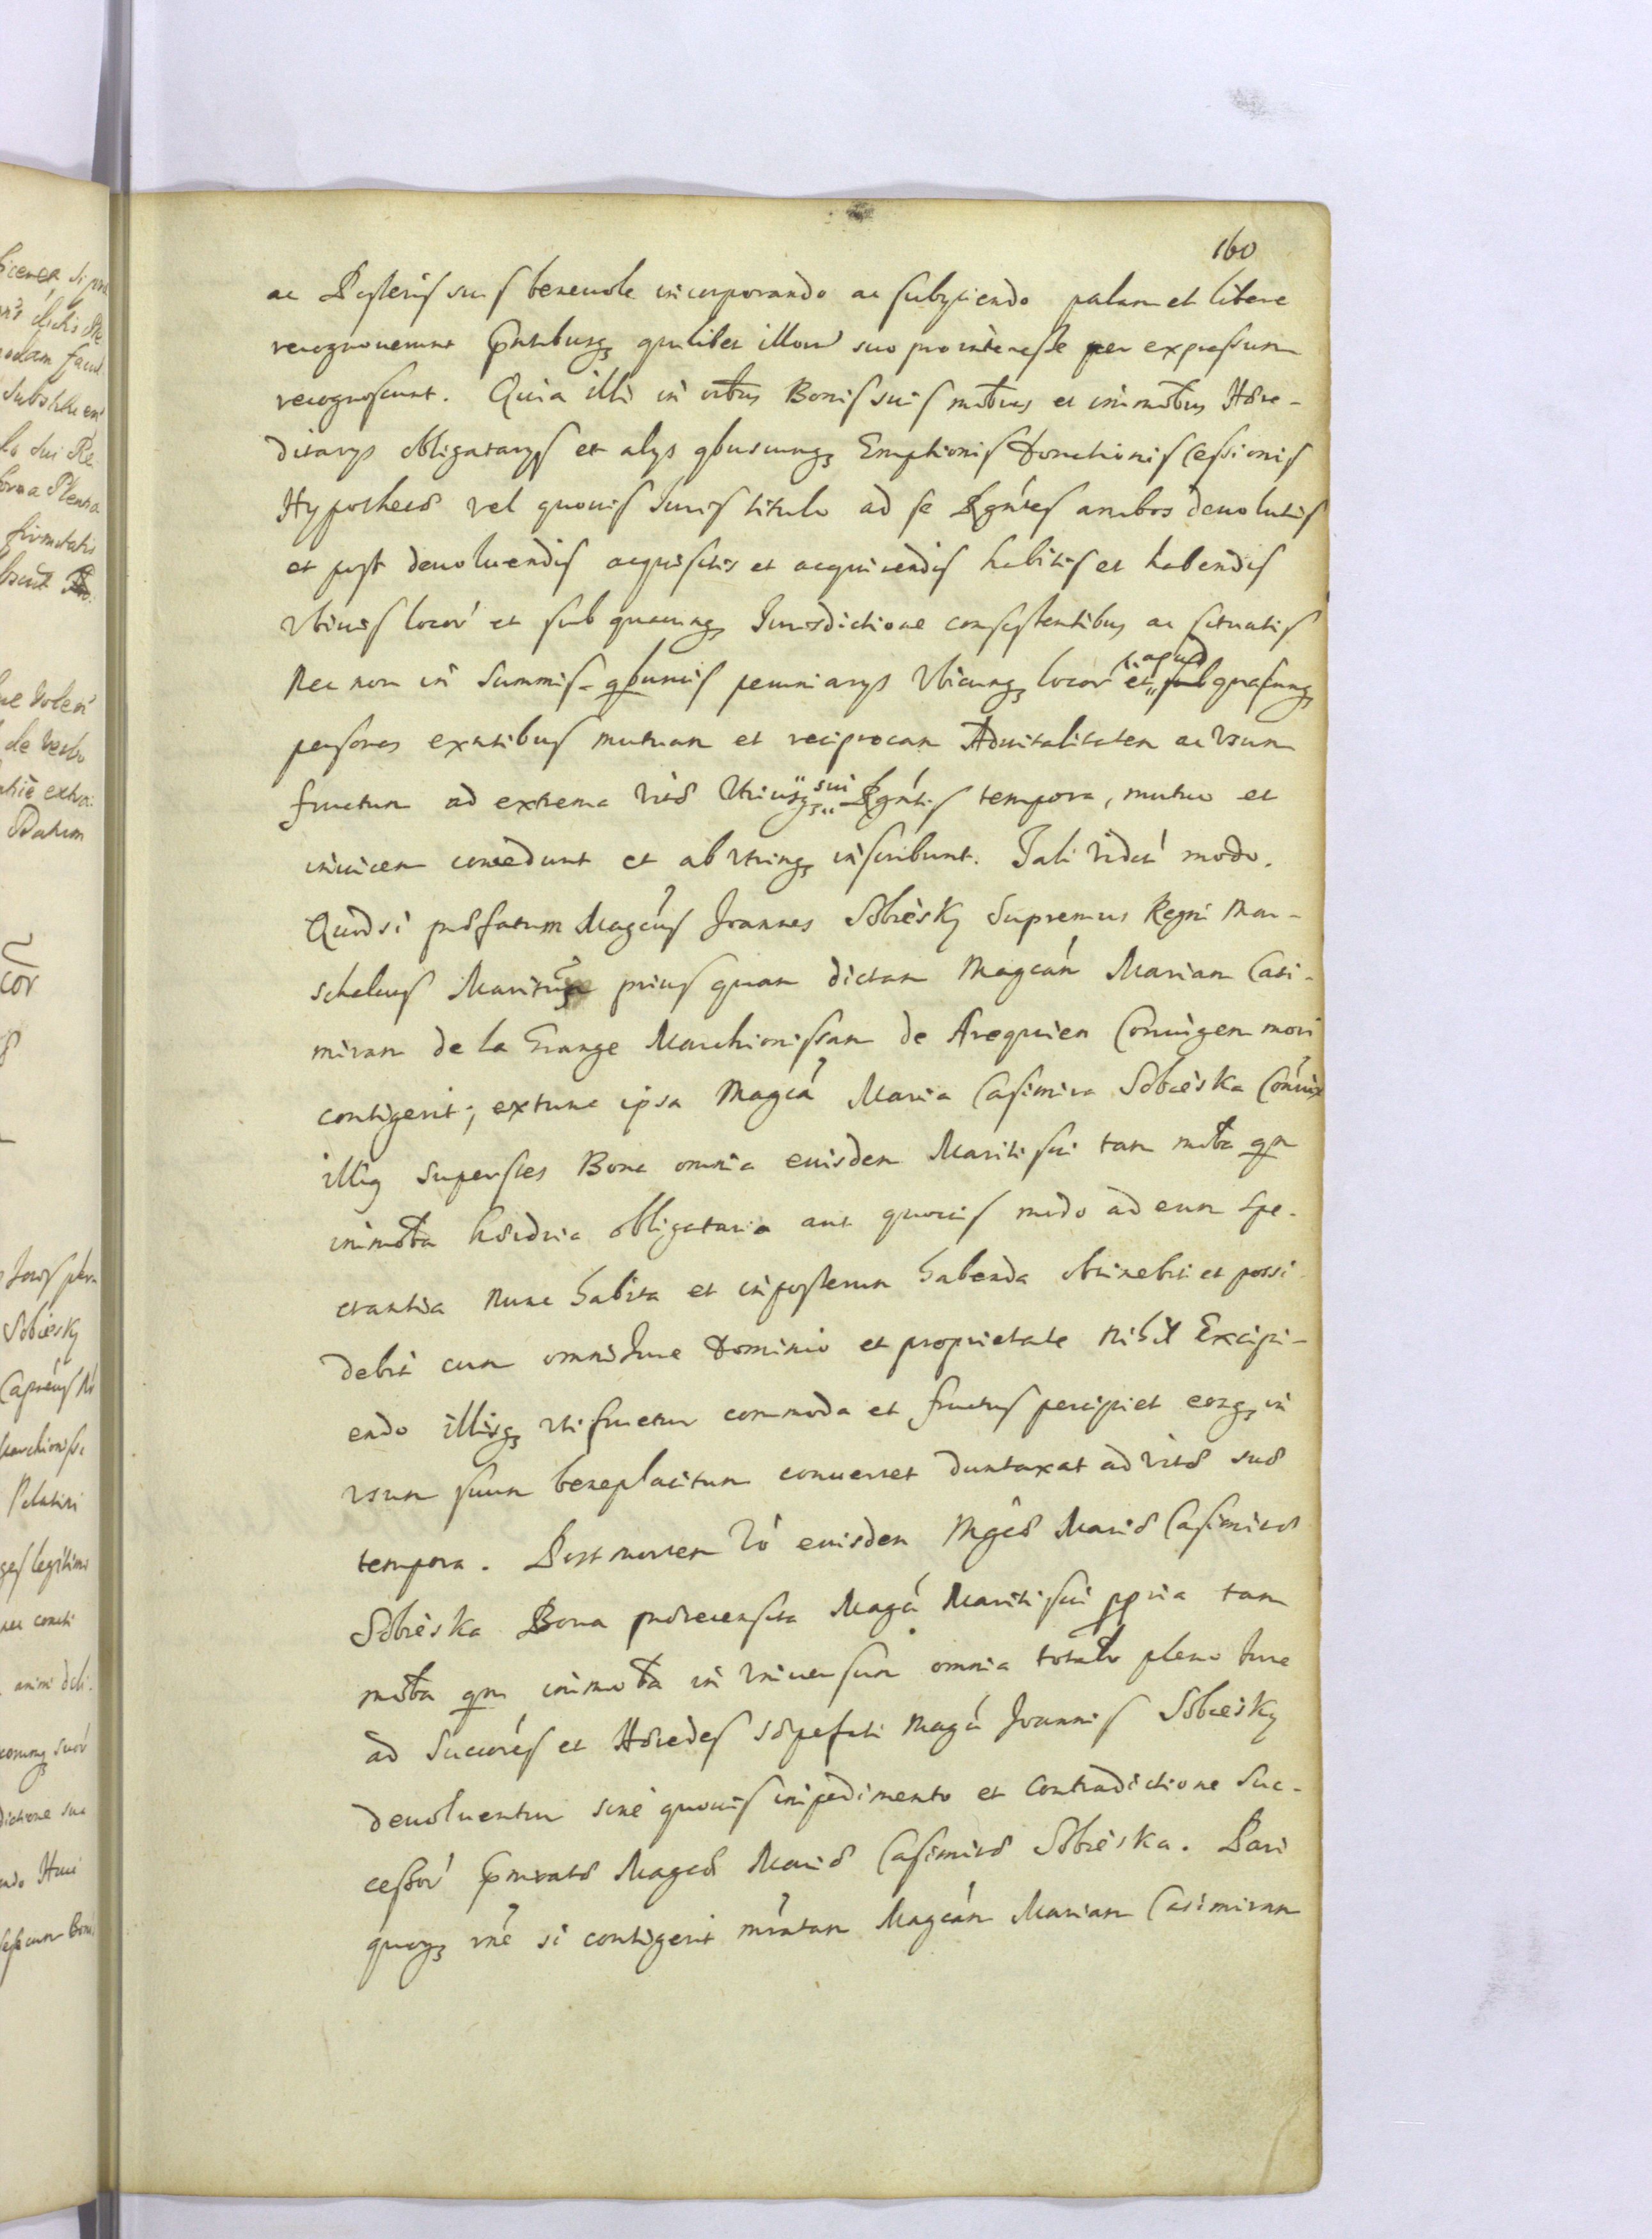 160
ac Posteris suis beneuole incorporando ac subyciendo palam et libere
recognouerunt Pntibusq quilibet illorũ suo pro interesse per expressum
recognoscunt. Quia illi in oibus Bonis suis mobus et inmobus Hære-
ditarys obligatarys et alys qbuscunq Emptionis Donationis Cessionis
Hypothecæ vel quouis Iuris titulo ad se Rgntes ambos deuolutis
et post deuoluendis acquisitis et acquirendis habitis et habendis
Vbiuis locor et sub quacunq Iurisdictione consistentibus ac situatis
Nec non in Summis qbusuis pecuniarys Vbicunq locor et apud quascunq
personas extntibus mutuam et reciprocam Aduitalitatem ac Vsum
fructum ad extrema vitæ Vtriusq sui Rgntis tempora, mutuo et
inuicem concedunt et ab vtrinq inscribunt. Tali videt modo.
Quod si præfatum Magcus Joannes Sobiesky Supremus Regni Mar-
schalcus Maritus prius quam dictam Magcam Mariam Casi-
miram de la Grange Marchionissam de Arequien Coniugem mori
contigerit; extunc ipsa Magca Maria Casimira Sobieska Coniux
illius Superstes Bona omnia eiusdem Mariti sui tam mobla qm
inmobla hæredria obligataria aut quouis modo ad eum spe-
ctantia nunc habita et inposterum habenda obtinebit et possi-
debit cum omni Iure Dominio et proprietate nihil Excipi-
endo illisq vtifruetur commoda et fructus percipiet eosq in
vsum suum beneplacitum conuertet duntaxat ad vitæ suæ
tempora. Post mortem vo eiusdem Mgcæ Mariæ Casimiræ
Sobieska Bona prærecensita Magci Mariti sui ppria tam
mobla qm inmobla in Vniuersum omnia totalr pleno Iure
ad Succores et Hæredes sæpefati Magci Joannis Sobiesky
deuoluentur sine quouis inpedimento et Contradictione Suc-
cessor Pmratæ Magcæ Mariæ Casimiræ Sobieska. Pari
quoq rne si contigerit mratam Magcam Mariam Casimiram